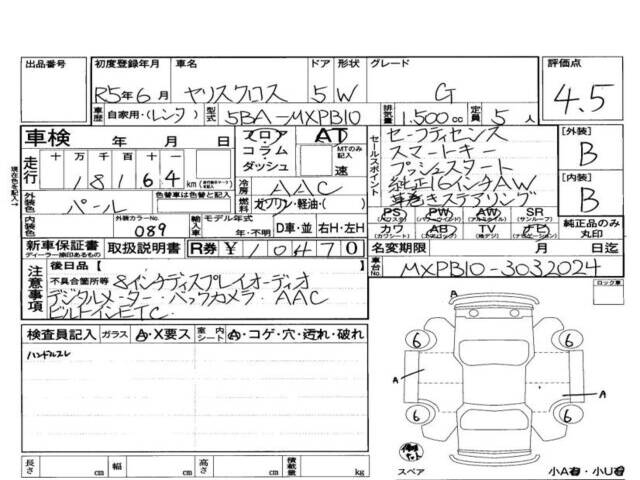 出品番号
初度登録年月 車名 ドア 形状 グレード
評価点
R5年6月 ヤリスクロス 5 W G
4.5
車歴 自家用・(レンタ) 型式 5BA-MXPB10 排気量 1.500cc 定員 5人
車検 年 月 日
フロア・コラム・ダッシュ
AT
MTのみ記入
速
現在色を記入→
走行 十 万 千 百 十 一
18164 km
冷房 AAC
外装色 パール
燃料 ガソリン・軽油・( )
セールスポイント
セーフティセンス
スマートキー
プッシュスタート
純正16インチAW
革巻きステアリング
[外装]
B
[内装]
B
PS PW AW SR
(パワステ) (パワーウインド) (アルミホイル) (サンルーフ)
カワ AB TV ナビ
(カワシート) (エアバッグ) (地デジ) (ナビゲーション)
純正品のみ丸印
内装色 外装カラーNo. 089
輸入車 モデル年式 年・不明 D車・並 右H・左H
新車保証書 取扱説明書 R券 ¥10470
ディーラー捺印あるもの
名変期限 月 日迄
車台No. MXPB10-3032024
注意事項
後日品【
不具合箇所等 8インチディスプレイオーディオ
デジタルメーター・バックカメラ・AAC
ビルトインETC
ロック車
検査員記入 ガラス A・X要ス 室内シート A・コゲ・穴・汚れ・破れ
ハンドルスレ
A
6 6
A
A
6 6
スペア
小A・小U
長さ cm 幅 cm 高さ cm 積載量 kg